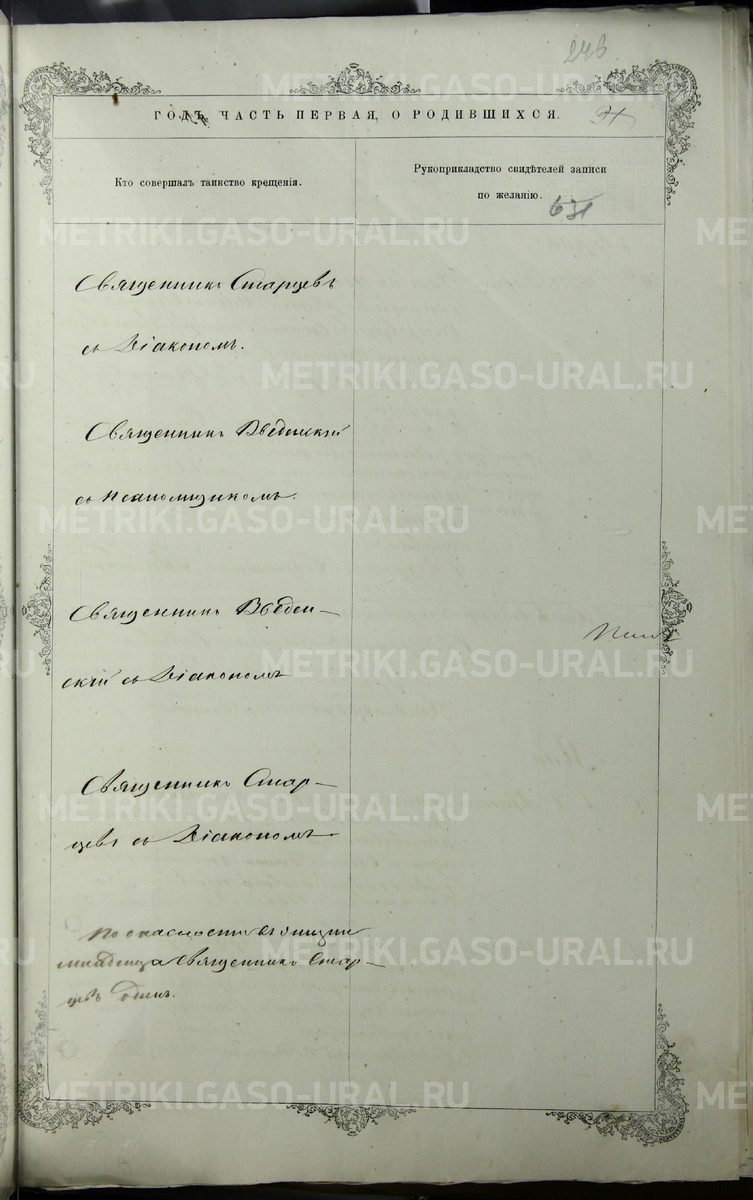 246
ГОДЪ, ЧАСТЬ ПЕРВАЯ, О РОДИВШИХСЯ.
Кто совершалъ таинство крещенія.
Рукоприкладство свидѣтелей записи
по желанію.
631
Священникъ Старцевъ
съ Діакономъ.
Священникъ Введенскій
съ Псаломщикомъ.
Священникъ Введен-
скій съ Діакономъ
Священникъ Стар-
цевъ съ Діакономъ
По опасности жизни
младенца Священникъ Стар-
цевъ одинъ.
METRIKI.GASO-URAL.RU